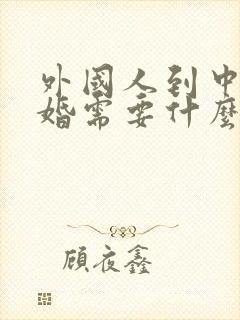 外國人到中
婚需要什麼
顧夜鑫